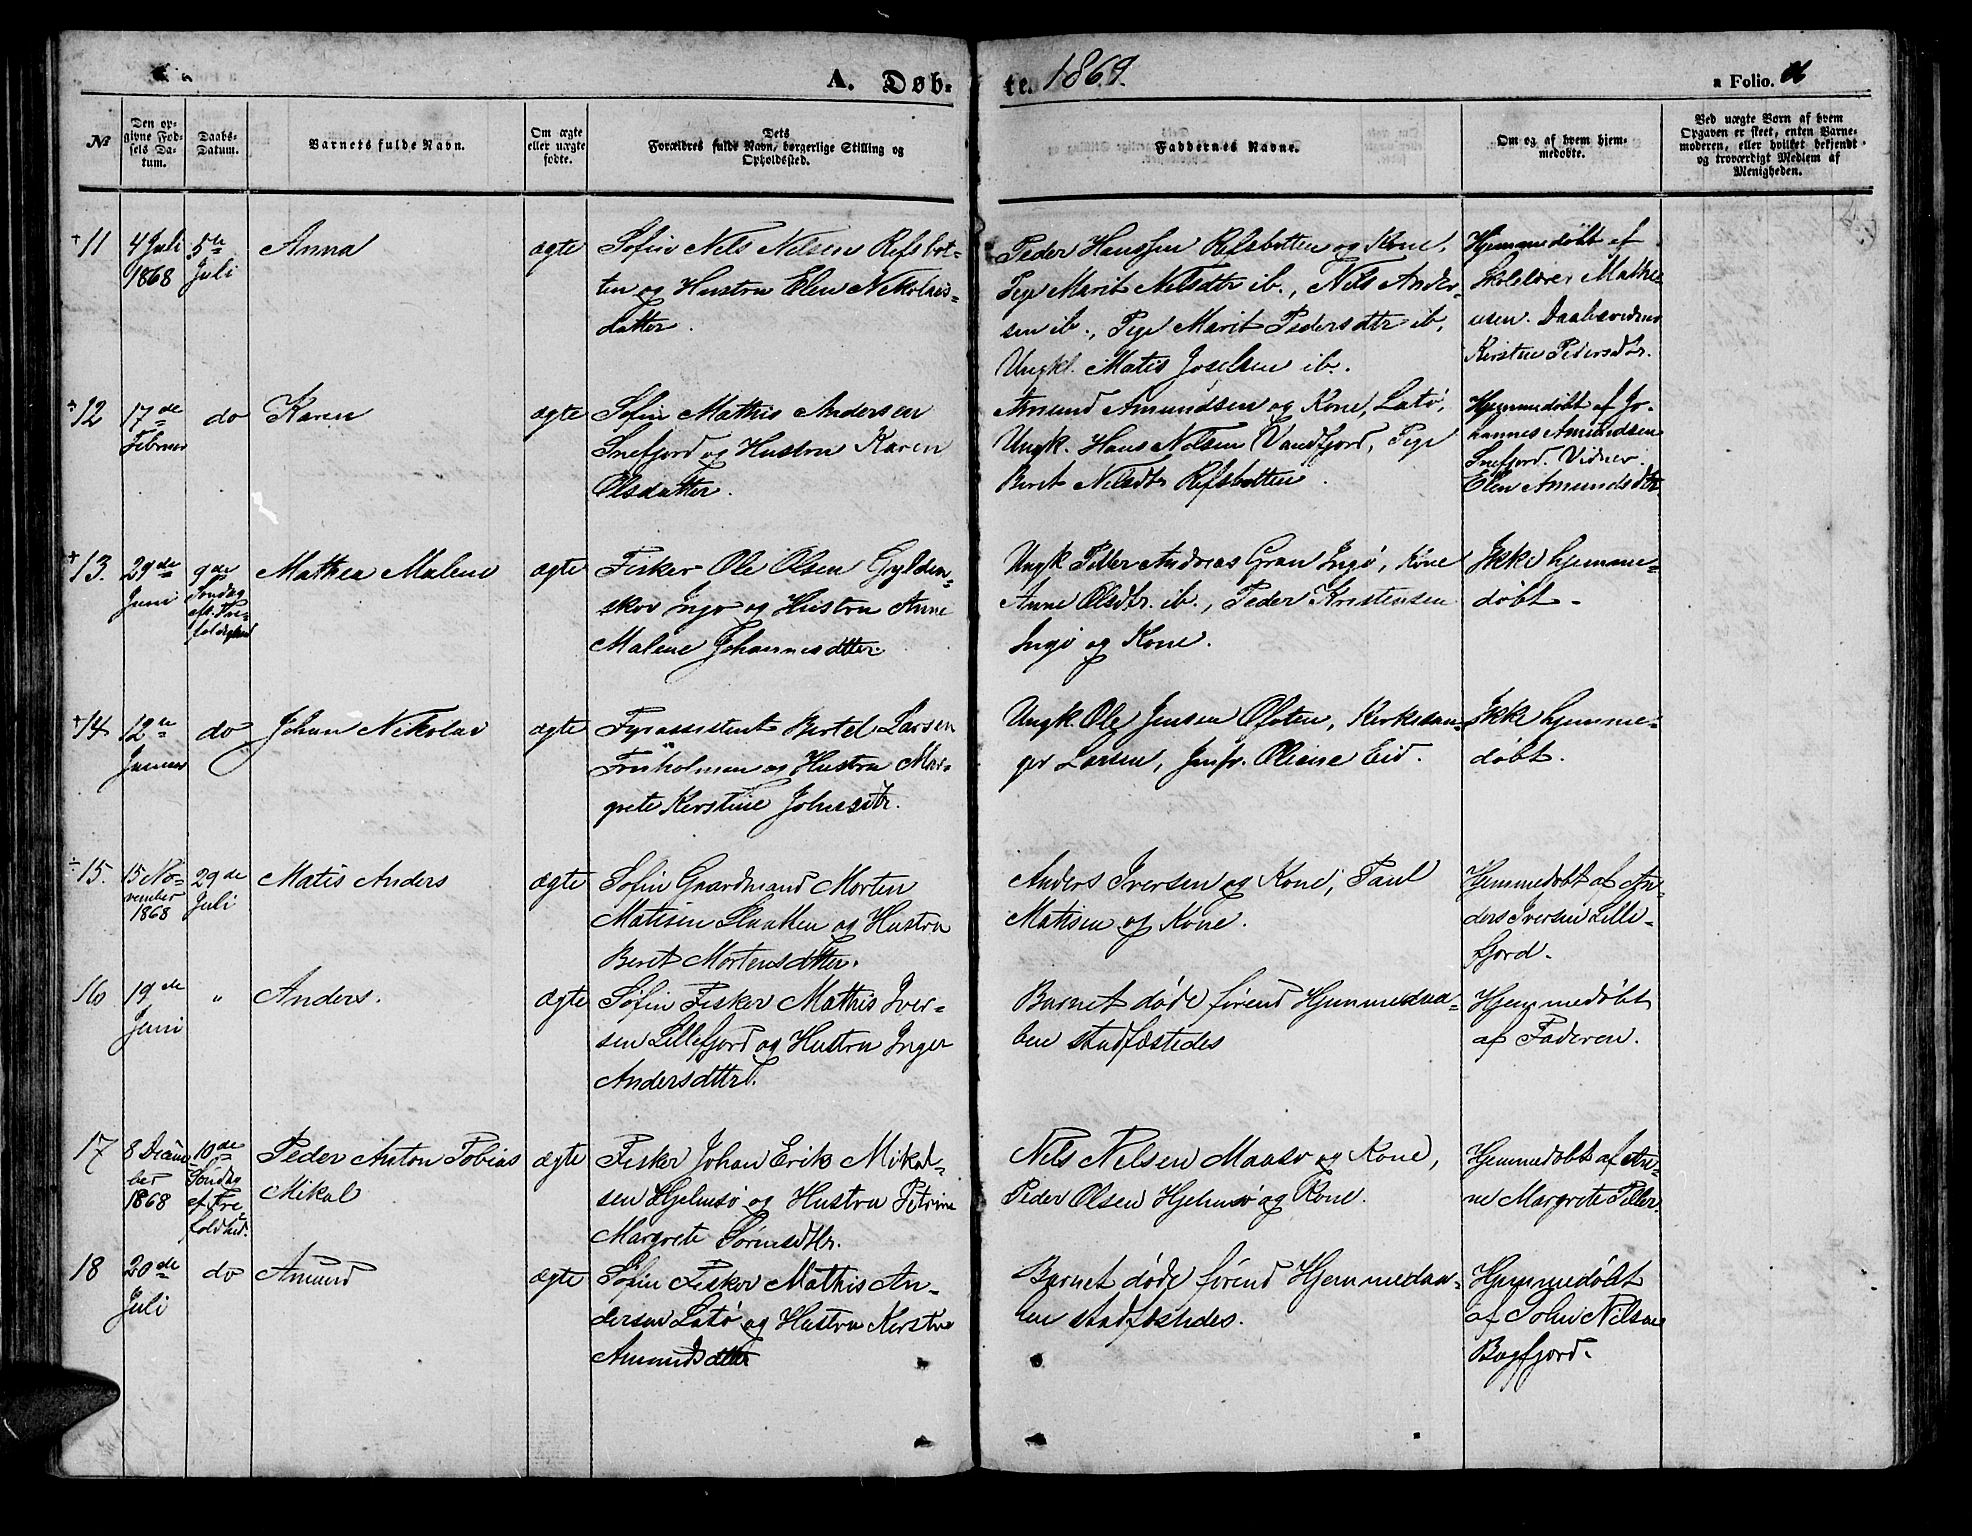 A. Døb-
te. 1869.
a Folio.
No
Den op-
givne Fød-
sels Da-
tum.
Daabs-
Datum.
Barnets fulde Navn.
Om ægte
eller uægte
fødte.
Dets
Forældres fulde Navn, borgerlige Stilling og
Opholdssted.
Faddernes Navne.
Om og af hvem hjem-
medøbte.
Ved uægte Børn af hvem
Opgaven er skeet, enten Barne-
moderen, eller hvilket bekjendt
og troværdigt Medlem af
Menigheden.
+11
4 Juli
1868
5te
Juli
Anna
ægte
Søfin Nels Nelsen Refsbot-
ten og Hustru Elen Nikolais-
datter.
Peder Hanssen Refsbotten og Kone,
Pige Marit Nelsdtr ib., Nils Ander-
sen ib., Pige Marit Pedersdtr ib,
Ungkl. Matis Joselsen ib.
Hjemmedøbt af
Skolelærer Mathi-
esen. Daabsvidner
Kirsten Pedersdtr.
+12
17de
Februar
do
Karen
ægte
Søfin Mathis Andersen
Snefjord og Hustru Karen
Olsdatter.
Amund Amundsen og Kone, Latø,
Ungk. Hans Nelsen Vandfjord, Pige
Beret Nelsdtr Refsbotten.
Hjemmedøbt af Jo-
hannes Amundsen
Snefjord. Vidner
Elen Amundsdtr
+13.
29de
Juni
9de
Søndag
eft. Tre-
foldighed
Mathea Malene
ægte
Fisker Ole Olsen Gylden-
skov Ingø og Hustru Anne
Malene Johannesdtter.
Ungk Peller Andreas Gran Ingø, Kone
Anne Olsdtr. ib., Peder Kristensen
Ingø og Kone.
Ikke hjemme-
døbt.
+14
12te
Januar
do
Johan Nikolai
ægte
Fyrassistent Bertel Larsen
Fruholmen og Hustru Mar-
grete Kerstine Johnsdtr.
Ungk. Ole Jensen Ofoten, Kirkesan-
ger Larsen, Jomfr. Oliane Eid.
Ikke hjemme-
døbt.
÷15.
15 No-
vember
1868
29de
Juli
Matis Anders
ægte
Søfin Gaardmand Morten
Matisen Slaatten og Hustru
Beret Mortensdtter.
Anders Iversen og Kone, Paul
Matisen og Kone.
Hjemmedøbt af An-
ders Iversen Lille-
fjord.
16
19de
Juni
"
Anders.
ægte
Søfin Fisker Mathis Iver-
sen Lillefjord og Hustru Inger
Andersdttr.
Barnet døde førend Hjemmedaa-
ben stadfæstedes
Hjemmedøbt
af Faderen.
17
8 Decem-
ber
1868
10de
Søndag
ef. Tre-
foldhed.
Peder Anton Tobias
Mikal
ægte
Fisker Johan Erik Mikal-
sen Hjelmsø og Hustru Petrine
Margrete Sørensdtr.
Nels Nelsen Maasø og Kone,
Peder Olsen Hjelmsø og Kone.
Hjemmedøbt af An-
ne Margrete Peller.
18
20de
Juli
do
Amund
ægte
Søfin Fisker Mathis An-
dersen Latø og Hustru Kerstin
Amundsdtter
Barnet døde førend Hjemmedaa-
ben stadfæstedes.
Hjemmedøbt
af John Nilsen
Bagfjord.